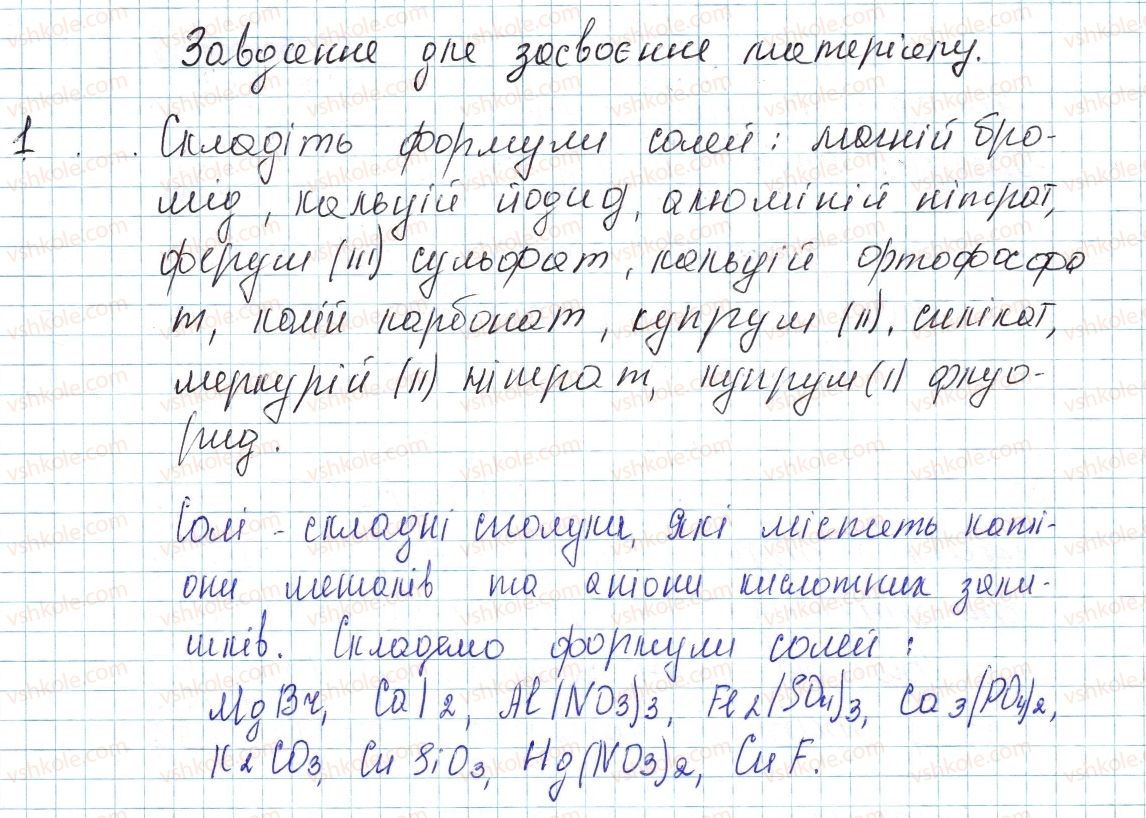 Завдання для засвоєння матеріалу.
1 Складіть формули солей: магній бро-
мід, кальцій йодид, алюміній нітрат,
ферум (III) сульфат, кальцій ортофосфа
т, калій карбонат, купрум (II), силікат,
меркурій (II) нітрат, купрум (I) флуо-
рид.
Солі - складні сполуки, які містять каті-
они металів та аніони кислотних зали-
шків. Складемо формули солей:
MgBr, CaI2, Al(NO3)3, Fe2(SO4)3, Ca3(PO4)2,
K2CO3, CuSiO3, Hg(NO3)2, CuF.